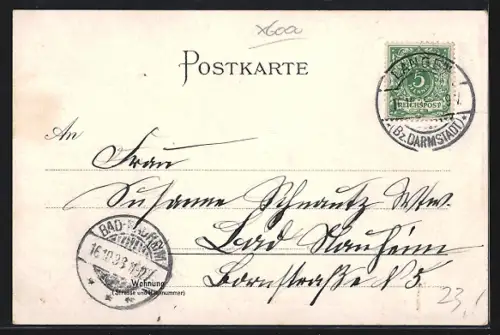 x600
POSTKARTE
LANGEN
5
REICHSPOST
(Bz. DARMSTADT)
An
Frau
Susanne Schnautz Wwe.
Bad Nauheim
Bornstraße N 5
BAD-NAUHEIM
16.10.98
Wohnung
(Strasse und Hausnummer)
23